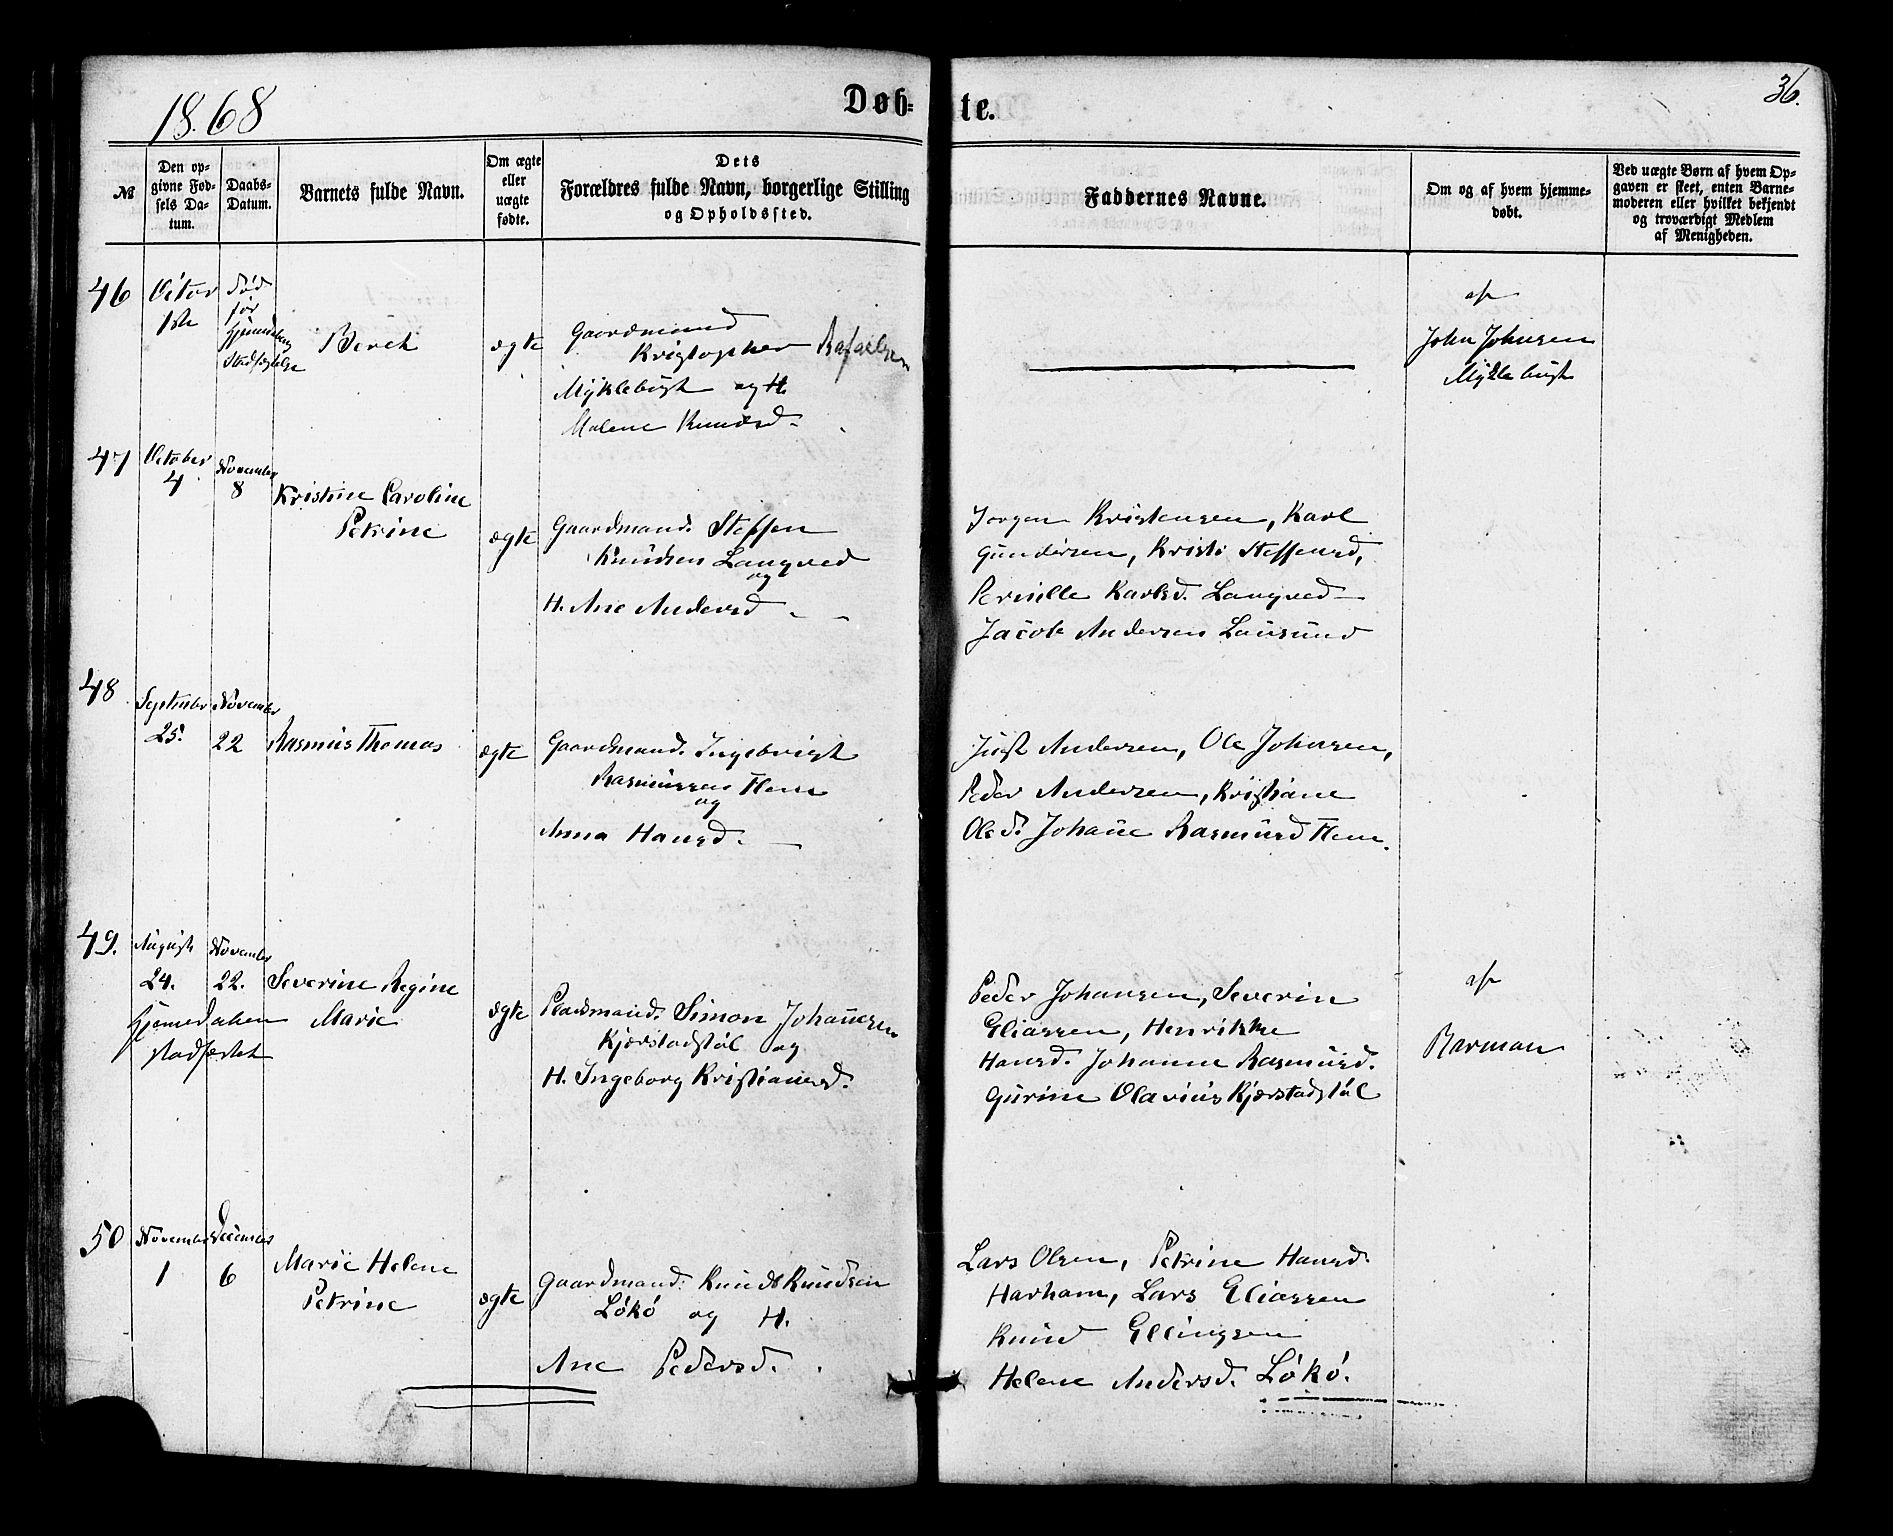 1868
Døb-
te.
36.
№
Den op-
givne Fød-
sels Da-
tum.
Daabs-
Datum.
Barnets fulde Navn.
Om ægte
eller
uægte
fødte.
Dets
Forældres fulde Navn, borgerlige Stilling
og Opholdssted.
Faddernes Navne.
Om og af hvem hjemme-
døbt.
Ved uægte Børn af hvem Op-
gaven er skeet, enten Barne-
moderen eller hvilket bekjendt
og troværdigt Medlem
af Menigheden.
46
Octor
1ste
død
før
Stadfæstelse
Beret
ægte
Gaardmand
Kristopher Rafaelsen
Myklebust og H.
Malene Knudsd.
af
John Johnsen
Myklebust
47
October
4
November
8
Kristine Caroline
Petrine
ægte
Gaardmand. Steffen
Knudsen Langved
og
H. Ane Andersd
Jørgen Kristensen, Karl
Gundersen, Kristi Steffensd,
Pernille Karlsd. Langved
Jacob Andersen Lausund
48
September
25.
November
22
Rasmus Thomas
ægte
Gaardmand. Ingebrigt
Rasmussen Flem
og
Anna Hansd.
Just Andersen, Ole Johnsen,
Peder Andersen, Kristiane
Olsd. Johane Rasmusd Flem.
49.
August
24.
November
22.
Hjemedaaben
stadfæstet
Severine Regine
Marie
ægte
Pladsmand. Simon Johannesen
Kjerstadstøl og
H. Ingeborg Kristiansd.
Peder Johansen, Severin
Eliassen, Henrikke
Hansd. Johanne Rasmusd.
Gurine Olavius Kjerstadstøl
af
50
November
1
December
6
Marie Helene
Petrine
ægte
Gaardmand. Knudt Knudsen
Løkø og H.
Ane Pedersd.
Lars Olsen, Petrine Hansd.
Harham, Lars Eliassen
Knud Ellingsen
Helene Andersd. Løkø.